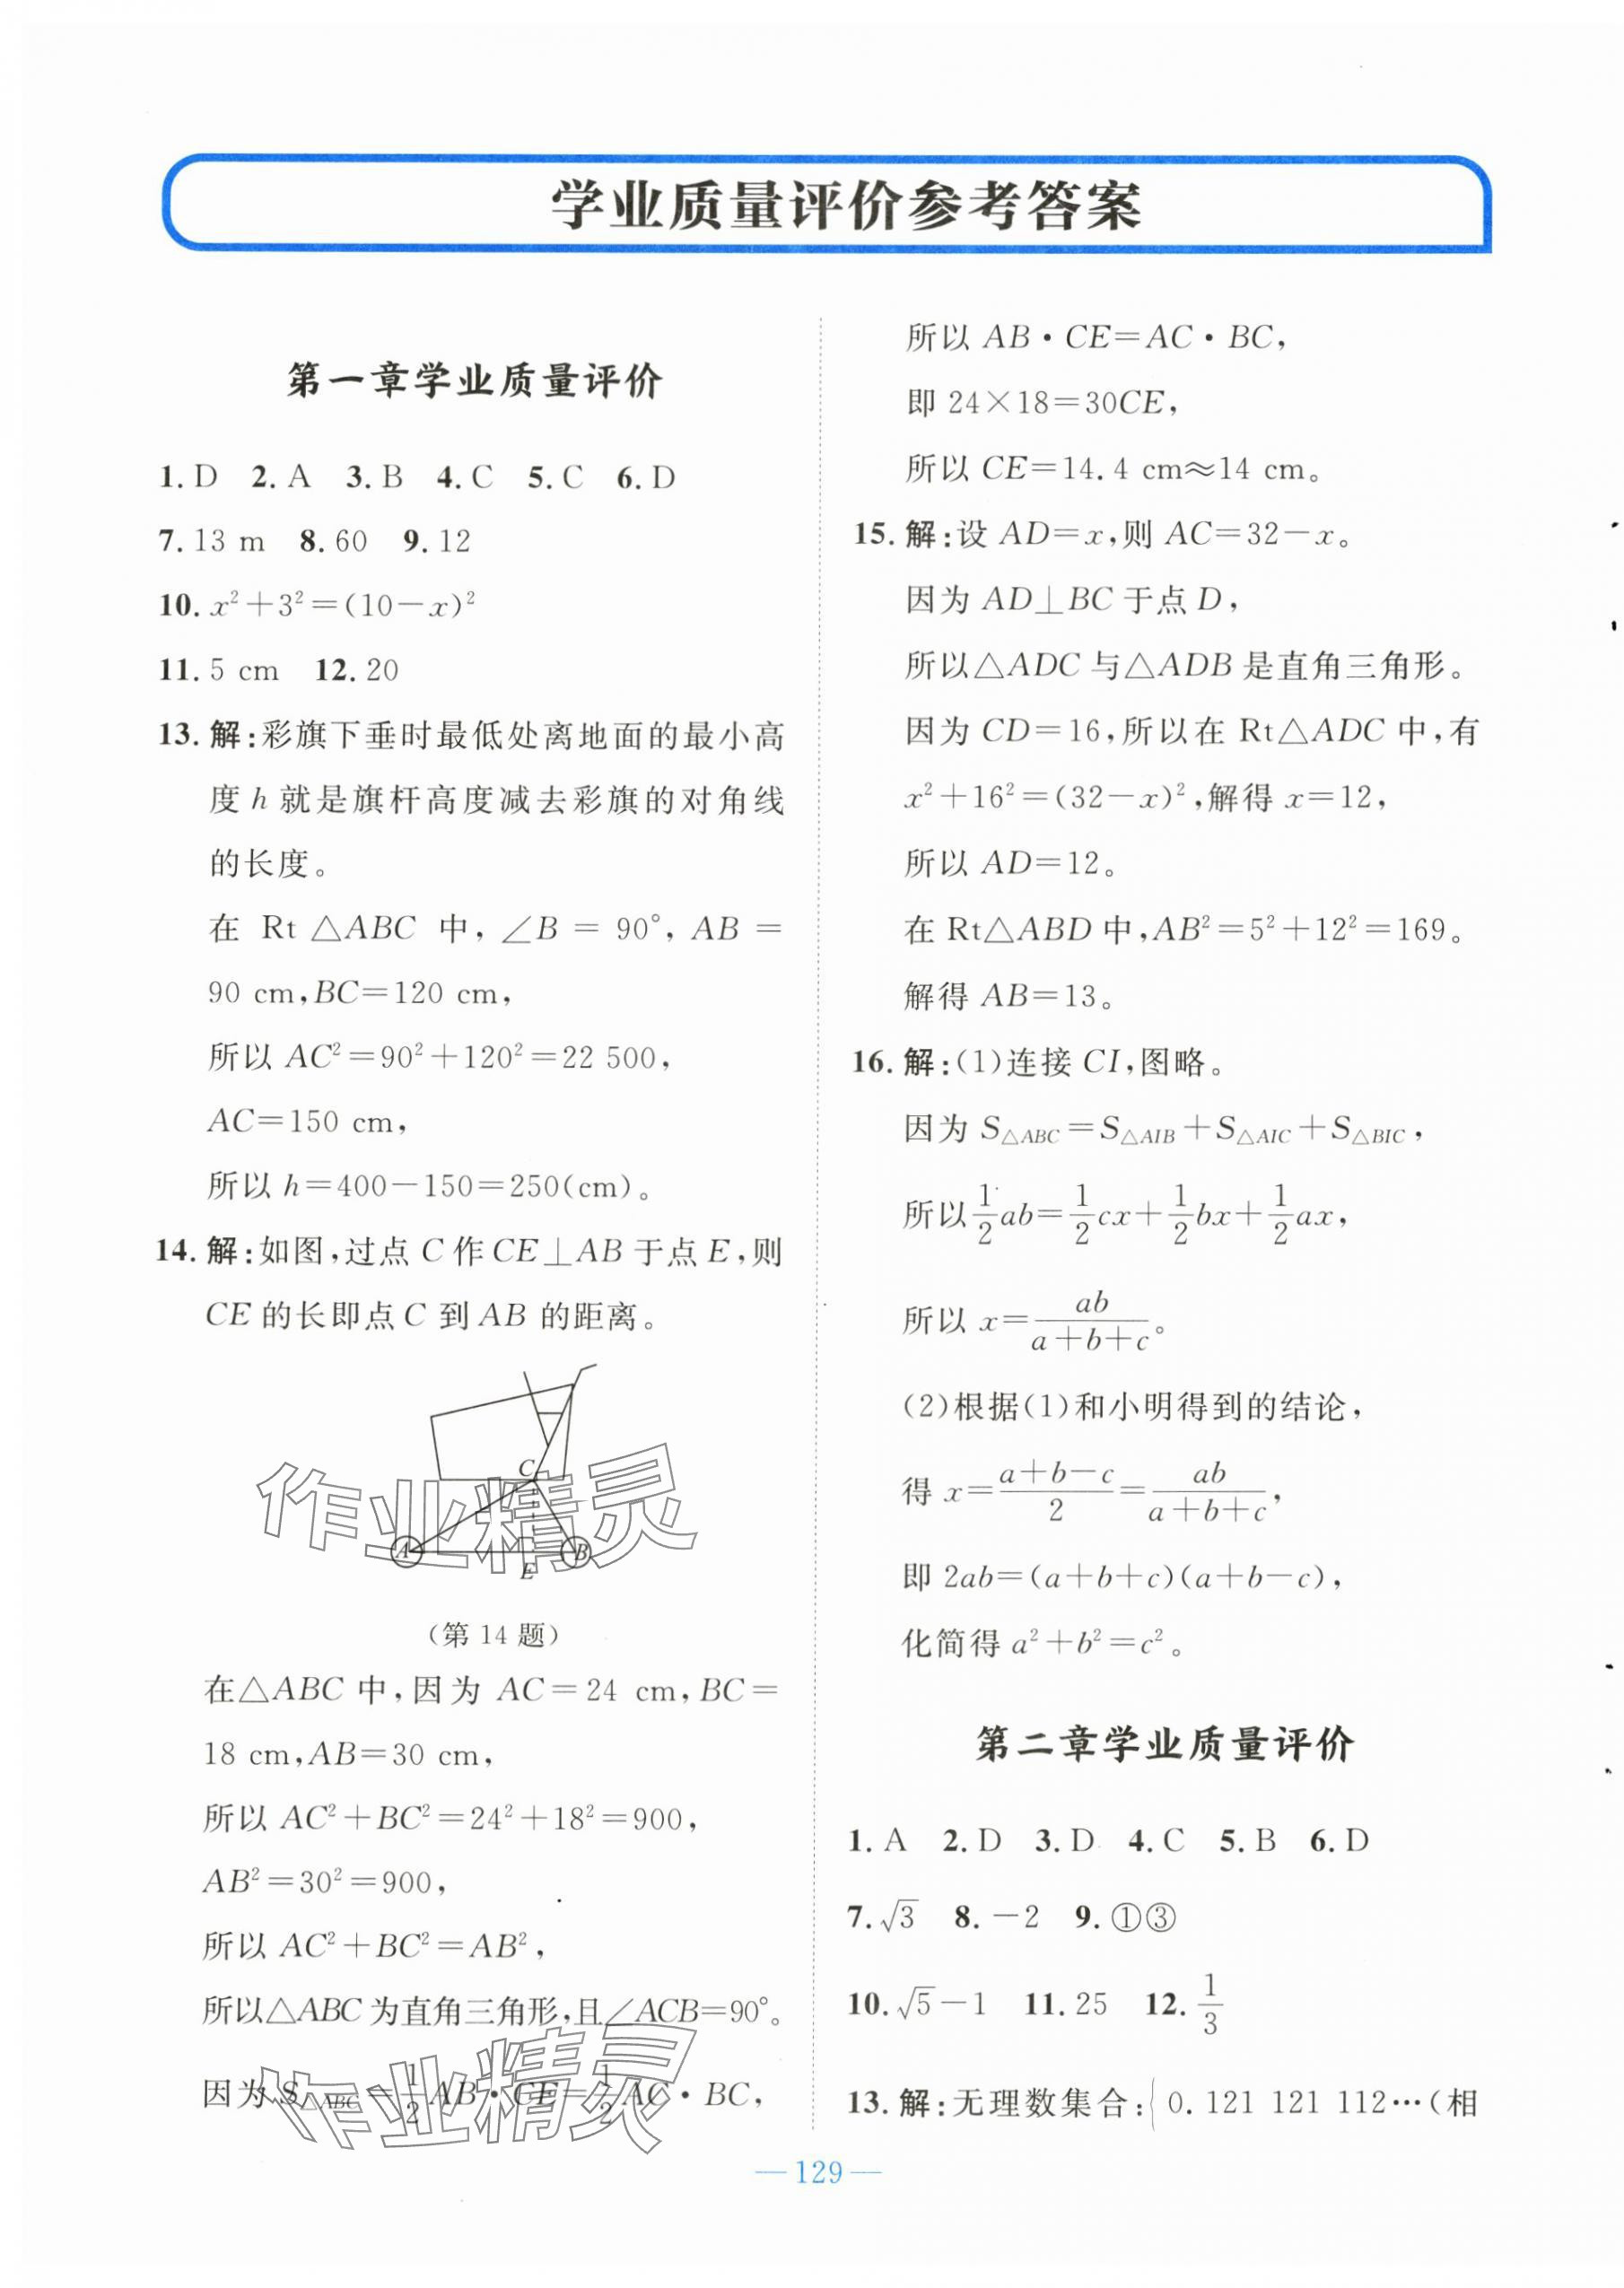 学业质量评价参考答案
第一章学业质量评价
1. D 2. A 3. B 4. C 5. C 6. D
7. 13 m 8. 60 9. 12
10. x²+3²=(10-x)²
11. 5 cm 12. 20
13. 解:彩旗下垂时最低处离地面的最小高
度 h 就是旗杆高度减去彩旗的对角线
的长度。
在 Rt △ABC 中, ∠B = 90°, AB =
90 cm,BC=120 cm,
所以 AC²=90²+120²=22 500,
AC=150 cm,
所以 h=400-150=250(cm)。
14. 解:如图,过点 C 作 CE⊥AB 于点 E,则
CE 的长即点 C 到 AB 的距离。
C
A
B
E
作业精灵
(第 14 题)
在△ABC 中,因为 AC=24 cm,BC=
18 cm,AB=30 cm,
所以 AC²+BC²=24²+18²=900,
AB²=30²=900,
所以 AC²+BC²=AB²,
所以△ABC 为直角三角形,且∠ACB=90°。
因为 S△ABC=1/2 AB·CE=1/2 AC·BC,
作业精灵
所以 AB·CE=AC·BC,
即 24×18=30CE,
所以 CE=14.4 cm≈14 cm。
15. 解:设 AD=x,则 AC=32-x。
因为 AD⊥BC 于点 D,
所以△ADC 与△ADB 是直角三角形。
因为 CD=16,所以在 Rt△ADC 中,有
x²+16²=(32-x)²,解得 x=12,
所以 AD=12。
在 Rt△ABD 中,AB²=5²+12²=169。
解得 AB=13。
16. 解:(1)连接 CI,图略。
因为 S△ABC=S△AIB+S△AIC+S△BIC,
所以 1/2 ab=1/2 cx+1/2 bx+1/2 ax,
所以 x=ab/(a+b+c)。
(2)根据(1)和小明得到的结论,
得 x=(a+b-c)/2=ab/(a+b+c),
即 2ab=(a+b+c)(a+b-c),
化简得 a²+b²=c²。
第二章学业质量评价
1. A 2. D 3. D 4. C 5. B 6. D
7. √3 8. -2 9. ①③
10. √5-1 11. 25 12. 1/3
13. 解:无理数集合:{0.121 121 112…(相
— 129 —